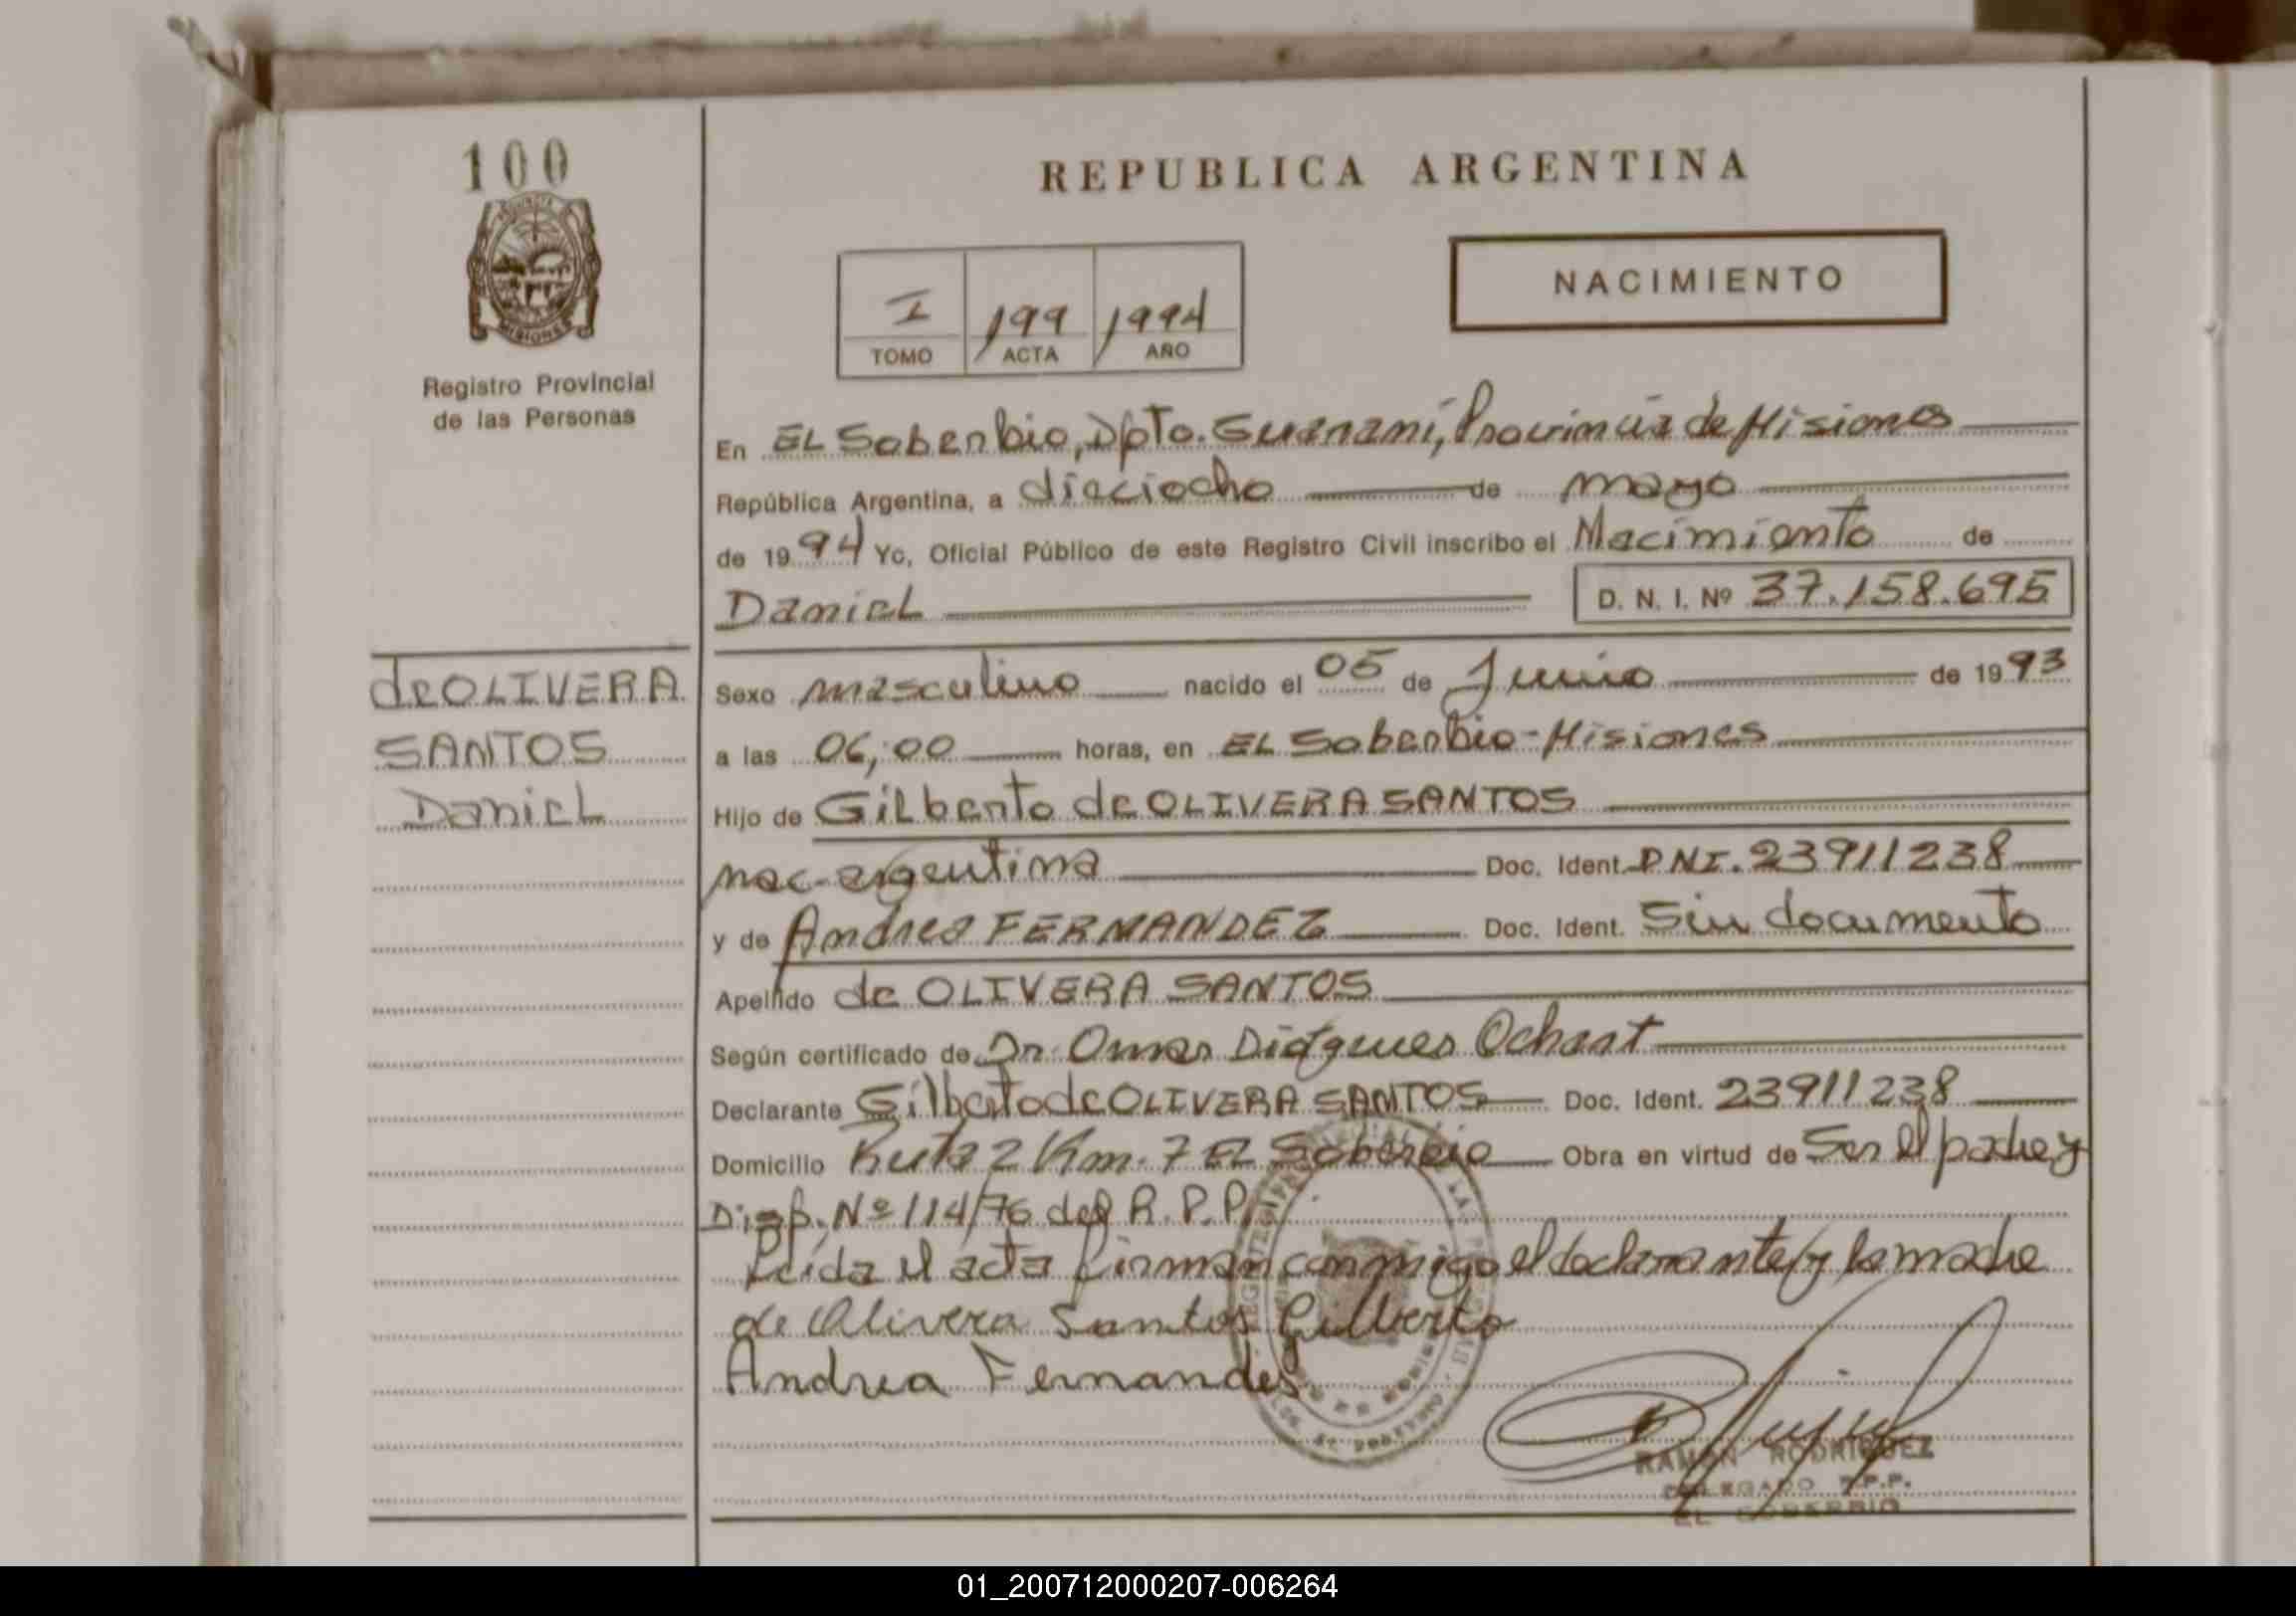 100
REPUBLICA ARGENTINA
NACIMIENTO
I 199 1994
TOMO ACTA AÑO
MISIONES
Registro Provincial
de las Personas
En EL Soberbio, Dpto. Guaraní, Provincia de Misiones
República Argentina, a dieciocho de mayo
de 1994 Yo, Oficial Público de este Registro Civil inscribo el Nacimiento de
Daniel D. N. I. Nº 37.158.695
de OLIVERA
SANTOS
Daniel
Sexo masculino nacido el 05 de Junio de 1993
a las 06,00 horas, en EL Soberbio-Misiones
Hijo de Gilberto de OLIVERA SANTOS
nac-argentina Doc. Ident. DNI. 23911238
y de Andrea FERNANDEZ Doc. Ident. Sin documento
Apellido de OLIVERA SANTOS
Según certificado de Dr. Omar Diógenes Ochast
Declarante Gilberto de OLIVERA SANTOS Doc. Ident. 23911238
Domicilio Ruta 2 Km. 7 EL Soberbio Obra en virtud de Ser el padre y
Disp. Nº 114/76 del R.P.P.
Leída el acta firman conmigo el declarante/y la madre
de Olivera Santos Gilberto
Andrea Fernandes
RAMON RODRIGUEZ
DELEGADO R.P.P.
EL SOBERBIO
01_200712000207-006264